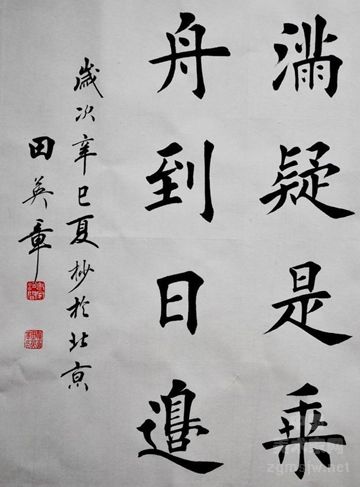 滿疑是乘
舟到日邊
歲次辛巳夏杪於北京
田英章
zgmsjw.net